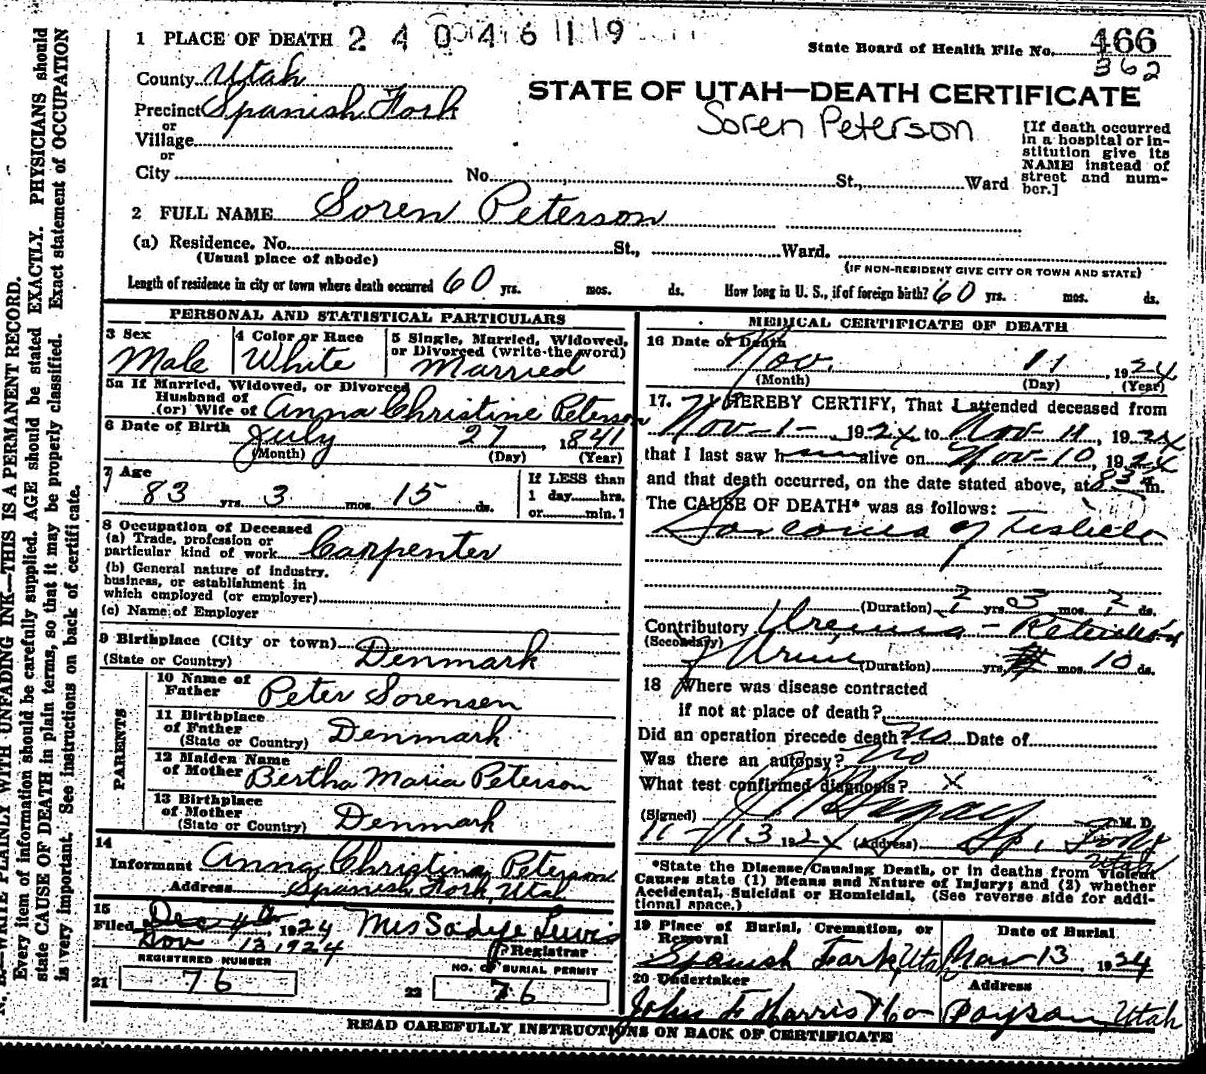 N. B.—WRITE PLAINLY WITH UNFADING INK—THIS IS A PERMANENT RECORD.
Every item of information should be carefully supplied. AGE should be stated EXACTLY. PHYSICIANS should
state CAUSE OF DEATH in plain terms, so that it may be properly classified. Exact statement of OCCUPATION
is very important. See instructions on back of certificate.
1 PLACE OF DEATH
State Board of Health File No. 466
362
County Utah
STATE OF UTAH—DEATH CERTIFICATE
Precinct Spanish Fork
Soren Peterson
or
Village
or
City No. St., Ward
[If death occurred
in a hospital or in-
stitution give its
NAME instead of
street and num-
ber.]
2 FULL NAME Soren Peterson
(a) Residence. No. St., Ward.
(Usual place of abode)
(IF NON-RESIDENT GIVE CITY OR TOWN AND STATE)
Length of residence in city or town where death occurred 60 yrs. mos. ds. How long in U. S., if of foreign birth? 60 yrs. mos. ds.
PERSONAL AND STATISTICAL PARTICULARS
3 Sex
Male
4 Color or Race
White
5 Single, Married, Widowed,
or Divorced (write the word)
Married
5a If Married, Widowed, or Divorced
Husband of
(or) Wife of Anna Christine Peterson
6 Date of Birth
July 27, 1841
(Month) (Day) (Year)
7 Age
83 yrs. 3 mos. 15 ds.
If LESS than
1 day hrs.
or min.?
8 Occupation of Deceased
(a) Trade, profession or
particular kind of work Carpenter
(b) General nature of industry,
business, or establishment in
which employed (or employer)
(c) Name of Employer
9 Birthplace (City or town)
(State or Country) Denmark
PARENTS
10 Name of
Father Peter Sorensen
11 Birthplace
of Father
(State or Country) Denmark
12 Maiden Name
of Mother Bertha Maria Peterson
13 Birthplace
of Mother
(State or Country) Denmark
14
Informant Anna Christina Peterson
Address Spanish Fork, Utah
15
Filed Dec 4th, 1924 Mrs Sadye Lewis
Nov 13 1924 Registrar
REGISTERED NUMBER
21 76
NO. OF BURIAL PERMIT
22 76
MEDICAL CERTIFICATE OF DEATH
16 Date of Death
Nov. 11, 1924
(Month) (Day) (Year)
17. I HEREBY CERTIFY, That I attended deceased from
Nov-1-, 1924 to Nov-11, 1924
that I last saw h alive on Nov-10, 1924
and that death occurred, on the date stated above, at m.
The CAUSE OF DEATH* was as follows:
Sarcoma of Testicle
(Duration) yrs. 3 mos. ds.
Contributory Uremia - Retention
(Secondary)
Urine (Duration) yrs. mos. 10 ds.
18 Where was disease contracted
if not at place of death?
Did an operation precede death? Date of
Was there an autopsy? No
What test confirmed diagnosis? X
(Signed) M. D.
11-13 1924 (Address) Sp. Fork
Utah
*State the Disease Causing Death, or in deaths from Violent
Causes state (1) Means and Nature of Injury; and (2) whether
Accidental, Suicidal or Homicidal. (See reverse side for addi-
tional space.)
19 Place of Burial, Cremation, or
Removal
Spanish Fork, Utah
Date of Burial
Nov 13, 1924
20 Undertaker
John F Harris
Address
Payson, Utah
READ CAREFULLY INSTRUCTIONS ON BACK OF CERTIFICATE